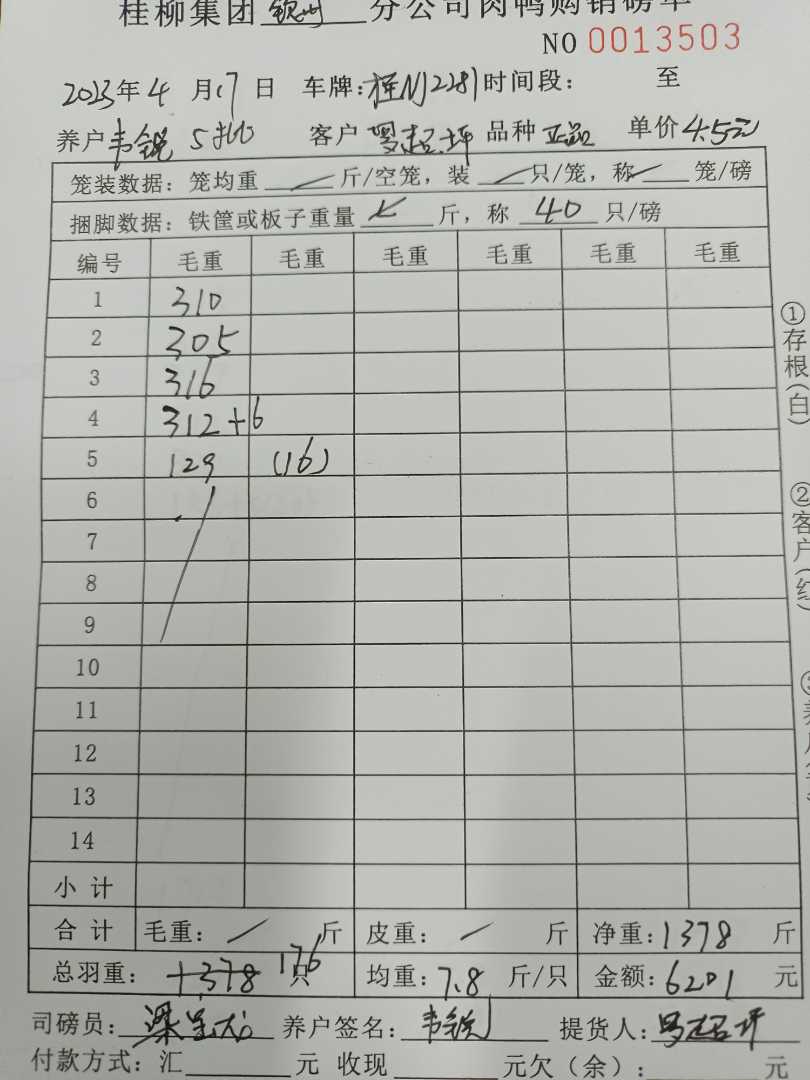 桂柳集团钦州分公司肉鸭购销磅单
NO 0013503
2023年4月17日 车牌:桂N 2281 时间段: 至
养户韦锐 5批 客户 罗起坪 品种 正品 单价4.5元
笼装数据: 笼均重 / 斤/空笼, 装 / 只/笼, 称 / 笼/磅
捆脚数据: 铁筐或板子重量 斤, 称 40 只/磅
编号 毛重 毛重 毛重 毛重 毛重 毛重
1 310
2 305
3 316
4 312+6
5 129 (16)
6
7
8
9
10
11
12
13
14
小计
合计 毛重: / 斤 皮重: / 斤 净重:1378 斤
总羽重: 1378 176 只 均重:7.8 斤/只 金额:6201 元
司磅员: 梁 养户签名: 韦锐 提货人: 罗起坪
付款方式: 汇 元 收现 元欠(余): 元
①存根(白)
②客户(红)